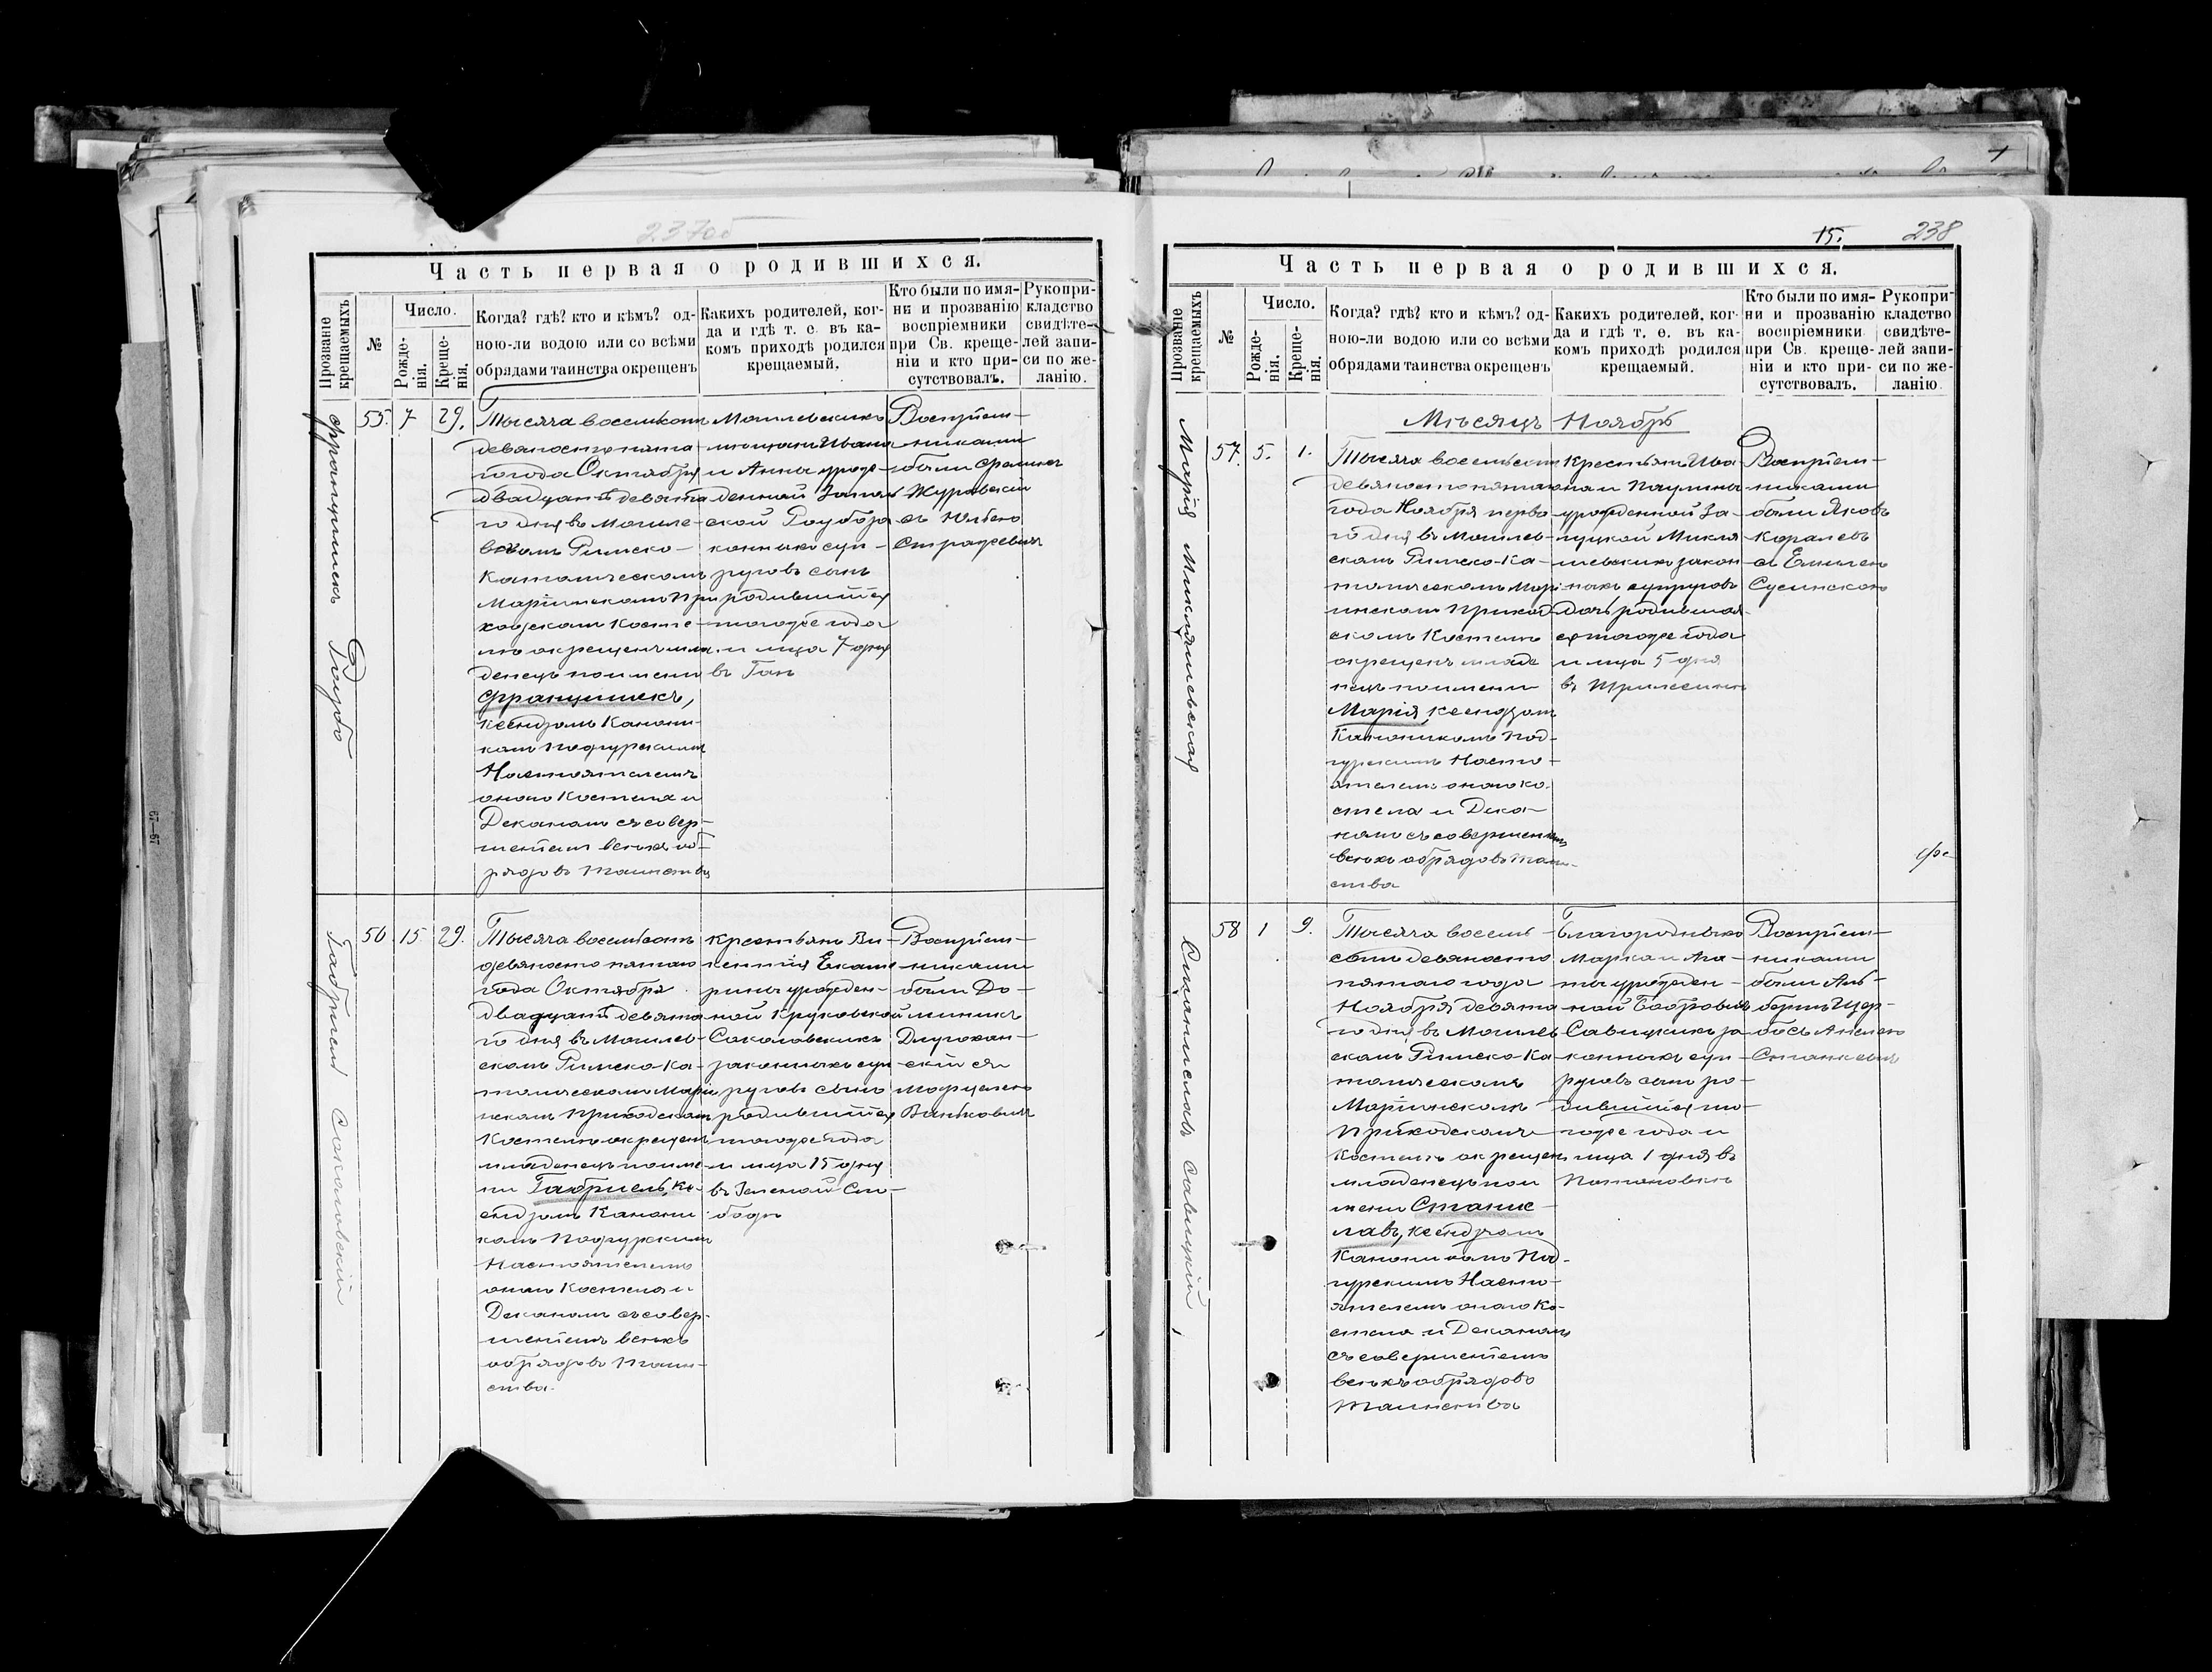 237об
Часть первая о родившихся.
Прозваніе крещаемыхъ
№
Число.
Рожде-
нія.
Креще-
нія.
Когда? гдѣ? кто и кѣмъ? од-
ною-ли водою или со всѣми
обрядами таинства окрещенъ
Какихъ родителей, ког-
да и гдѣ т. е. въ ка-
комъ приходѣ родился
крещаемый.
Кто были по имя-
ни и прозванію
воспріемники
при Св. креще-
ніи и кто при-
сутствовалъ.
Рукопри-
кладство
свидѣте-
лей запи-
си по же-
ланію.
Францишекъ Роубо
55. 7 29.
Тысяча восемьсотъ
девяносто пята
го года Октября
двадцать девята
го дня въ Могиле-
вскомъ Римско-
Католическомъ
Маріинскомъ При
ходскомъ Косте-
лѣ окрещенъ мла-
денецъ по имени
Францишекъ,
Ксендзомъ Канони-
комъ Подгурскимъ
Настоятелемъ
оного Костела и
Деканомъ съ совер-
шеніемъ всѣхъ об-
рядовъ Таинства
Могилевскихъ
мещанъ Ивана
и Анны урож-
денной
Роубо за-
конныхъ суп-
руговъ сынъ
родившійся
того же года
и мца 7 дня
въ
Воспріем-
никами
были Францъ
Журавскій
съ
56 15. 29.
Габриель Соколовскій
Тысяча восемьсотъ
девяносто пятаго
года Октября
двадцать девята
го дня въ Могилев-
скомъ Римско-Ка-
толическомъ Марі
нскомъ Приходскомъ
Костелѣ окрещенъ
младенецъ по име-
ни Габриель, Кс-
ендзомъ Канони
комъ Подгурскимъ
Настоятелемъ
оного Костела и
Деканомъ съ совер-
шеніемъ всѣхъ
обрядовъ Таин-
ства.
Крестьянъ Ви-
кентія Екате
рины урожден-
ной Круковской
Соколовскихъ
законныхъ суп-
руговъ сынъ
родившійся
того же года
и мца 15 дня
въ Зеленой Сло-
бодѣ
Воспріем-
никами
были До-
миникъ
Длугокан-
скій съ
15. 238
Часть первая о родившихся.
Прозваніе крещаемыхъ
№
Число.
Рожде-
нія.
Креще-
нія.
Когда? гдѣ? кто и кѣмъ? од-
ною-ли водою или со всѣми
обрядами таинства окрещенъ
Какихъ родителей, ког-
да и гдѣ т. е. въ ка-
комъ приходѣ родился
крещаемый.
Кто были по имя-
ни и прозванію
воспріемники
при Св. креще-
ніи и кто при-
сутствовалъ.
Рукопри-
кладство
свидѣте-
лей запи-
си по же-
ланію.
Мѣсяцъ Ноябрь
Марія Микляшевская
57. 5. 1.
Тысяча восемьсотъ
девяносто пятаго
года Ноября перва
го дня въ Могилев-
скомъ Римско-Ка-
толическомъ Марі
инскомъ Приход-
скомъ Костелѣ
окрещенъ младе
нецъ по имени
Марія, Ксендзомъ
Каноникомъ Под-
гурскимъ Насто-
ятелемъ оного Ко-
стела и Дека-
номъ съ совершеніемъ
всѣхъ обрядовъ Таин-
ства
Крестьянъ Ива-
на и Паулины
урожденной За-
луцкой Микля
шевскихъ закон
ныхъ супруговъ
дочь родившая-
ся того же года
и мца 5 дня
въ
Воспріем-
никами
были Яковъ
Королевъ
съ
58 1 9.
Станиславъ Савицкій
Тысяча восемь-
сотъ девяносто
пятаго года
Ноября девята
го дня въ Могилев
скомъ Римско-Ка
толическомъ
Маріинскомъ
Приходскомъ
Костелѣ окрещенъ
младенецъ по и
мени Станис-
лавъ, Ксендзомъ
Каноникомъ Под-
гурскимъ Насто-
ятелемъ оного Ко-
стела и Деканомъ
съ совершеніемъ
всѣхъ обрядовъ
Таинства
Благородныхъ
Марка и
урожден-
ной Бобровичъ
Савицкихъ за
конныхъ суп-
руговъ сынъ ро-
дившійся то-
го же года и
мца 1 дня въ
Воспріем-
никами
были Аль-
бертъ Щер-
бо съ
Станкевичъ